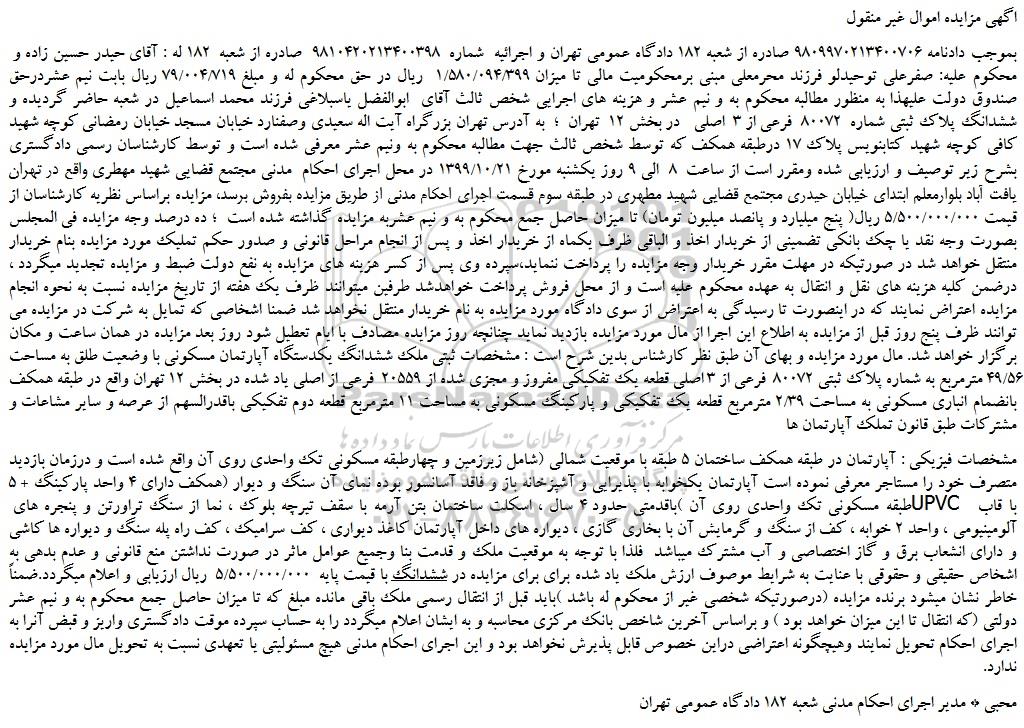 اگهی مزایده اموال غیر منقول
بموجب دادنامه ۹۸۰۹۹۷۰۲۱۳۴۰۰۷۰۶ صادره از شعبه ۱۸۲ دادگاه عمومی تهران و اجرائیه شماره ۹۸۱۰۴۲۰۲۱۳۴۰۰۳۹۸ صادره از شعبه ۱۸۲ له : آقای حیدر حسین زاده و
محکوم علیه: صفرعلی توحیدلو فرزند محرمعلی مبنی برمحکومیت مالی تا میزان ۱/۵۸۰/۰۹۴/۳۹۹ ریال در حق محکوم له و مبلغ ۷۹/۰۰۴/۷۱۹ ریال بابت نیم عشردرحق
صندوق دولت علیهذا به منظور مطالبه محکوم به و نیم عشر و هزینه های اجرایی شخص ثالث آقای ابوالفضل یاسبلاغی فرزند محمد اسماعیل در شعبه حاضر گردیده و
ششدانگ پلاک ثبتی شماره ۸۰۰۷۲ فرعی از ۳ اصلی در بخش ۱۲ تهران ؛ به آدرس تهران بزرگراه آیت اله سعیدی وصفنارد خیابان مسجد خیابان رمضانی کوچه شهید
کافی کوچه شهید کتابنویس پلاک ۱۷ درطبقه همکف که توسط شخص ثالث جهت مطالبه محکوم به ونیم عشر معرفی شده است و توسط کارشناسان رسمی دادگستری
بشرح زیر توصیف و ارزیابی شده ومقرر است از ساعت ۸ الی ۹ روز یکشنبه مورخ ۱۳۹۹/۱۰/۲۱ در محل اجرای احکام مدنی مجتمع قضایی شهید مهطری واقع در تهران
یافت آباد بلوارمعلم ابتدای خیابان حیدری مجتمع قضایی شهید مطهری در طبقه سوم قسمت اجرای احکام مدنی از طریق مزایده بفروش برسد، مزایده براساس نظریه کارشناسان از
قیمت ۵/۵۰۰/۰۰۰/۰۰۰ ریال( پنج میلیارد و پانصد میلیون تومان) تا میزان حاصل جمع محکوم به و نیم عشربه مزایده گذاشته شده است ؛ ده درصد وجه مزایده فی المجلس
بصورت وجه نقد یا چک بانکی تضمینی از خریدار اخذ و الباقی ظرف یکماه از خریدار اخذ و پس از انجام مراحل قانونی و صدور حکم تملیک مورد مزایده بنام خریدار
منتقل خواهد شد در صورتیکه در مهلت مقرر خریدار وجه مزایده را پرداخت ننماید،سپرده وی پس از کسر هزینه های مزایده به نفع دولت ضبط و مزایده تجدید میگردد ،
درضمن کلیه هزینه های نقل و انتقال به عهده محکوم علیه است و از محل فروش پرداخت خواهدشد طرفین میتوانند ظرف یک هفته از تاریخ مزایده نسبت به نحوه انجام
مزایده اعتراض نمایند که در اینصورت تا رسیدگی به اعتراض از سوی دادگاه مورد مزایده به نام خریدار منتقل نخواهد شد ضمنا اشخاصی که تمایل به شرکت در مزایده می
توانند ظرف پنج روز قبل از مزایده به اطلاع این اجرا از مال مورد مزایده بازدید نماید چنانچه روز مزایده مصادف با ایام تعطیل شود روز بعد مزایده در همان ساعت و مکان
برگزار خواهد شد. مال مورد مزایده و بهای آن طبق نظر کارشناس بدین شرح است : مشخصات ثبتی ملک ششدانگ یکدستگاه آپارتمان مسکونی با وضعیت طلق به مساحت
۴۹/۵۶ مترمربع به شماره پلاک ثبتی ۸۰۰۷۲ فرعی از ۳ اصلی قطعه یک تفکیکی مفروز و مجزی شده از ۲۰۵۵۹ فرعی از اصلی یاد شده در بخش ۱۲ تهران واقع در طبقه همکف
بانضمام انباری مسکونی به مساحت ۲/۳۹ مترمربع قطعه یک تفکیکی و پارکینگ مسکونی به مساحت ۱۱ مترمربع قطعه دوم تفکیکی باقدرالسهم از عرصه و سایر مشاعات و
مشترکات طبق قانون تملک آپارتمان ها
مشخصات فیزیکی : آپارتمان در طبقه همکف ساختمان ۵ طبقه با موقعیت شمالی (شامل زیرزمین و چهارطبقه مسکونی تک واحدی روی آن واقع شده است و درزمان بازدید
متصرف خود را مستاجر معرفی نموده است آپارتمان یکخوابه با پذیرایی و آشپزخانه باز و فاقد آسانسور بوده نمای آن سنگ و دیوار (همکف دارای ۴ واحد پارکینگ + ۵
طبقه مسکونی تک واحدی روی آن )باقدمتی حدود ۴ سال ، اسکلت ساختمان بتن آرمه با سقف تیرچه بلوک ، نما از سنگ تراورتن و پنجره های UPVC با قاب
آلومینیومی ، واحد ۲ خوابه ، کف از سنگ و گرمایش آن با بخاری گازی ، دیواره های داخل آپارتمان کاغذ دیواری ، کف سرامیک ، کف راه پله سنگ و دیواره ها کاشی
و دارای انشعاب برق و گاز اختصاصی و آب مشترک میباشد فلذا با توجه به موقعیت ملک و قدمت بنا وجمیع عوامل ماثر در صورت نداشتن منع قانونی و عدم بدهی به
اشخاص حقیقی و حقوقی با عنایت به شرایط موصوف ارزش ملک یاد شده برای برای مزایده در ششدانگ با قیمت پایه ۵/۵۰۰/۰۰۰/۰۰۰ ریال ارزیابی و اعلام میگردد.ضمناً
خاطر نشان میشود برنده مزایده (درصورتیکه شخصی غیر از محکوم له باشد )باید قبل از انتقال رسمی ملک باقی مانده مبلغ که تا میزان حاصل جمع محکوم به و نیم عشر
دولتی (که انتقال تا این میزان خواهد بود ) و براساس آخرین شاخص بانک مرکزی محاسبه و به ایشان اعلام میگردد را به حساب سپرده موقت دادگستری واریز و قبض آنرا به
اجرای احکام تحویل نمایند وهیچگونه اعتراضی دراین خصوص قابل پذیرش نخواهد بود و این اجرای احکام مدنی هیچ مسئولیتی یا تعهدی نسبت به تحویل مال مورد مزایده
ندارد.
محبی * مدیر اجرای احکام مدنی شعبه ۱۸۲ دادگاه عمومی تهران
ParsNamadData
مرکز فرآوری اطلاعات پارس نماد داده ها